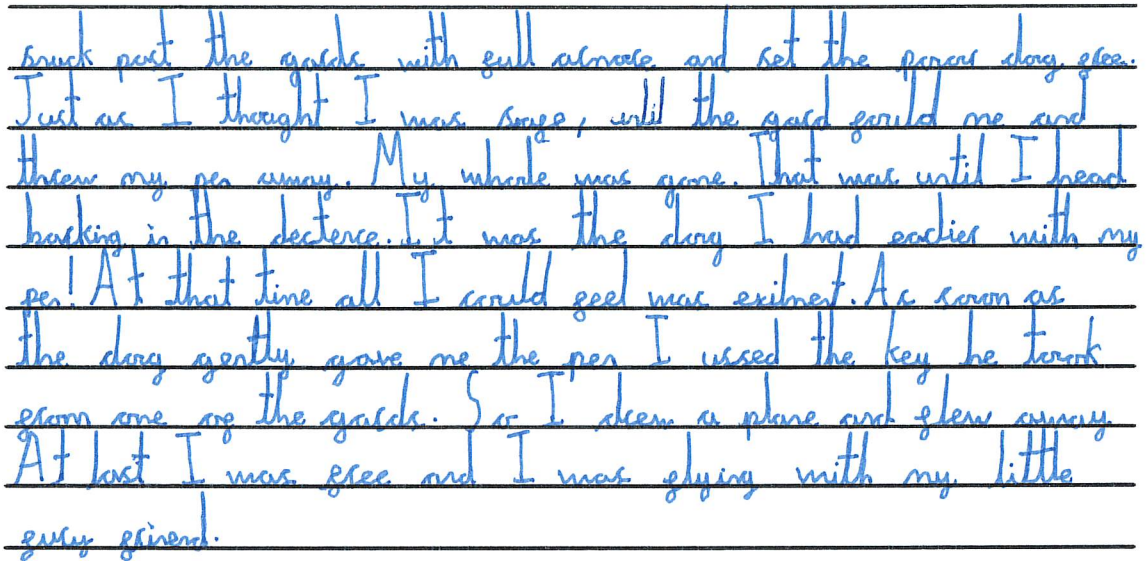 snuck past the gards with full armore and set the poor dog free.
Just as I thought I was safe, until the gard fould me and
threw my pen away. My whole was gone. That was until I head
barking in the dectence. It was the dog I had earlier with my
pen! At that time all I could feel was exilment. As soon as
the dog gently gave me the pen I ussed the key he took
from one of the gards. So I drew a plane and flew away
At last I was free and I was flying with my little
fury friend.